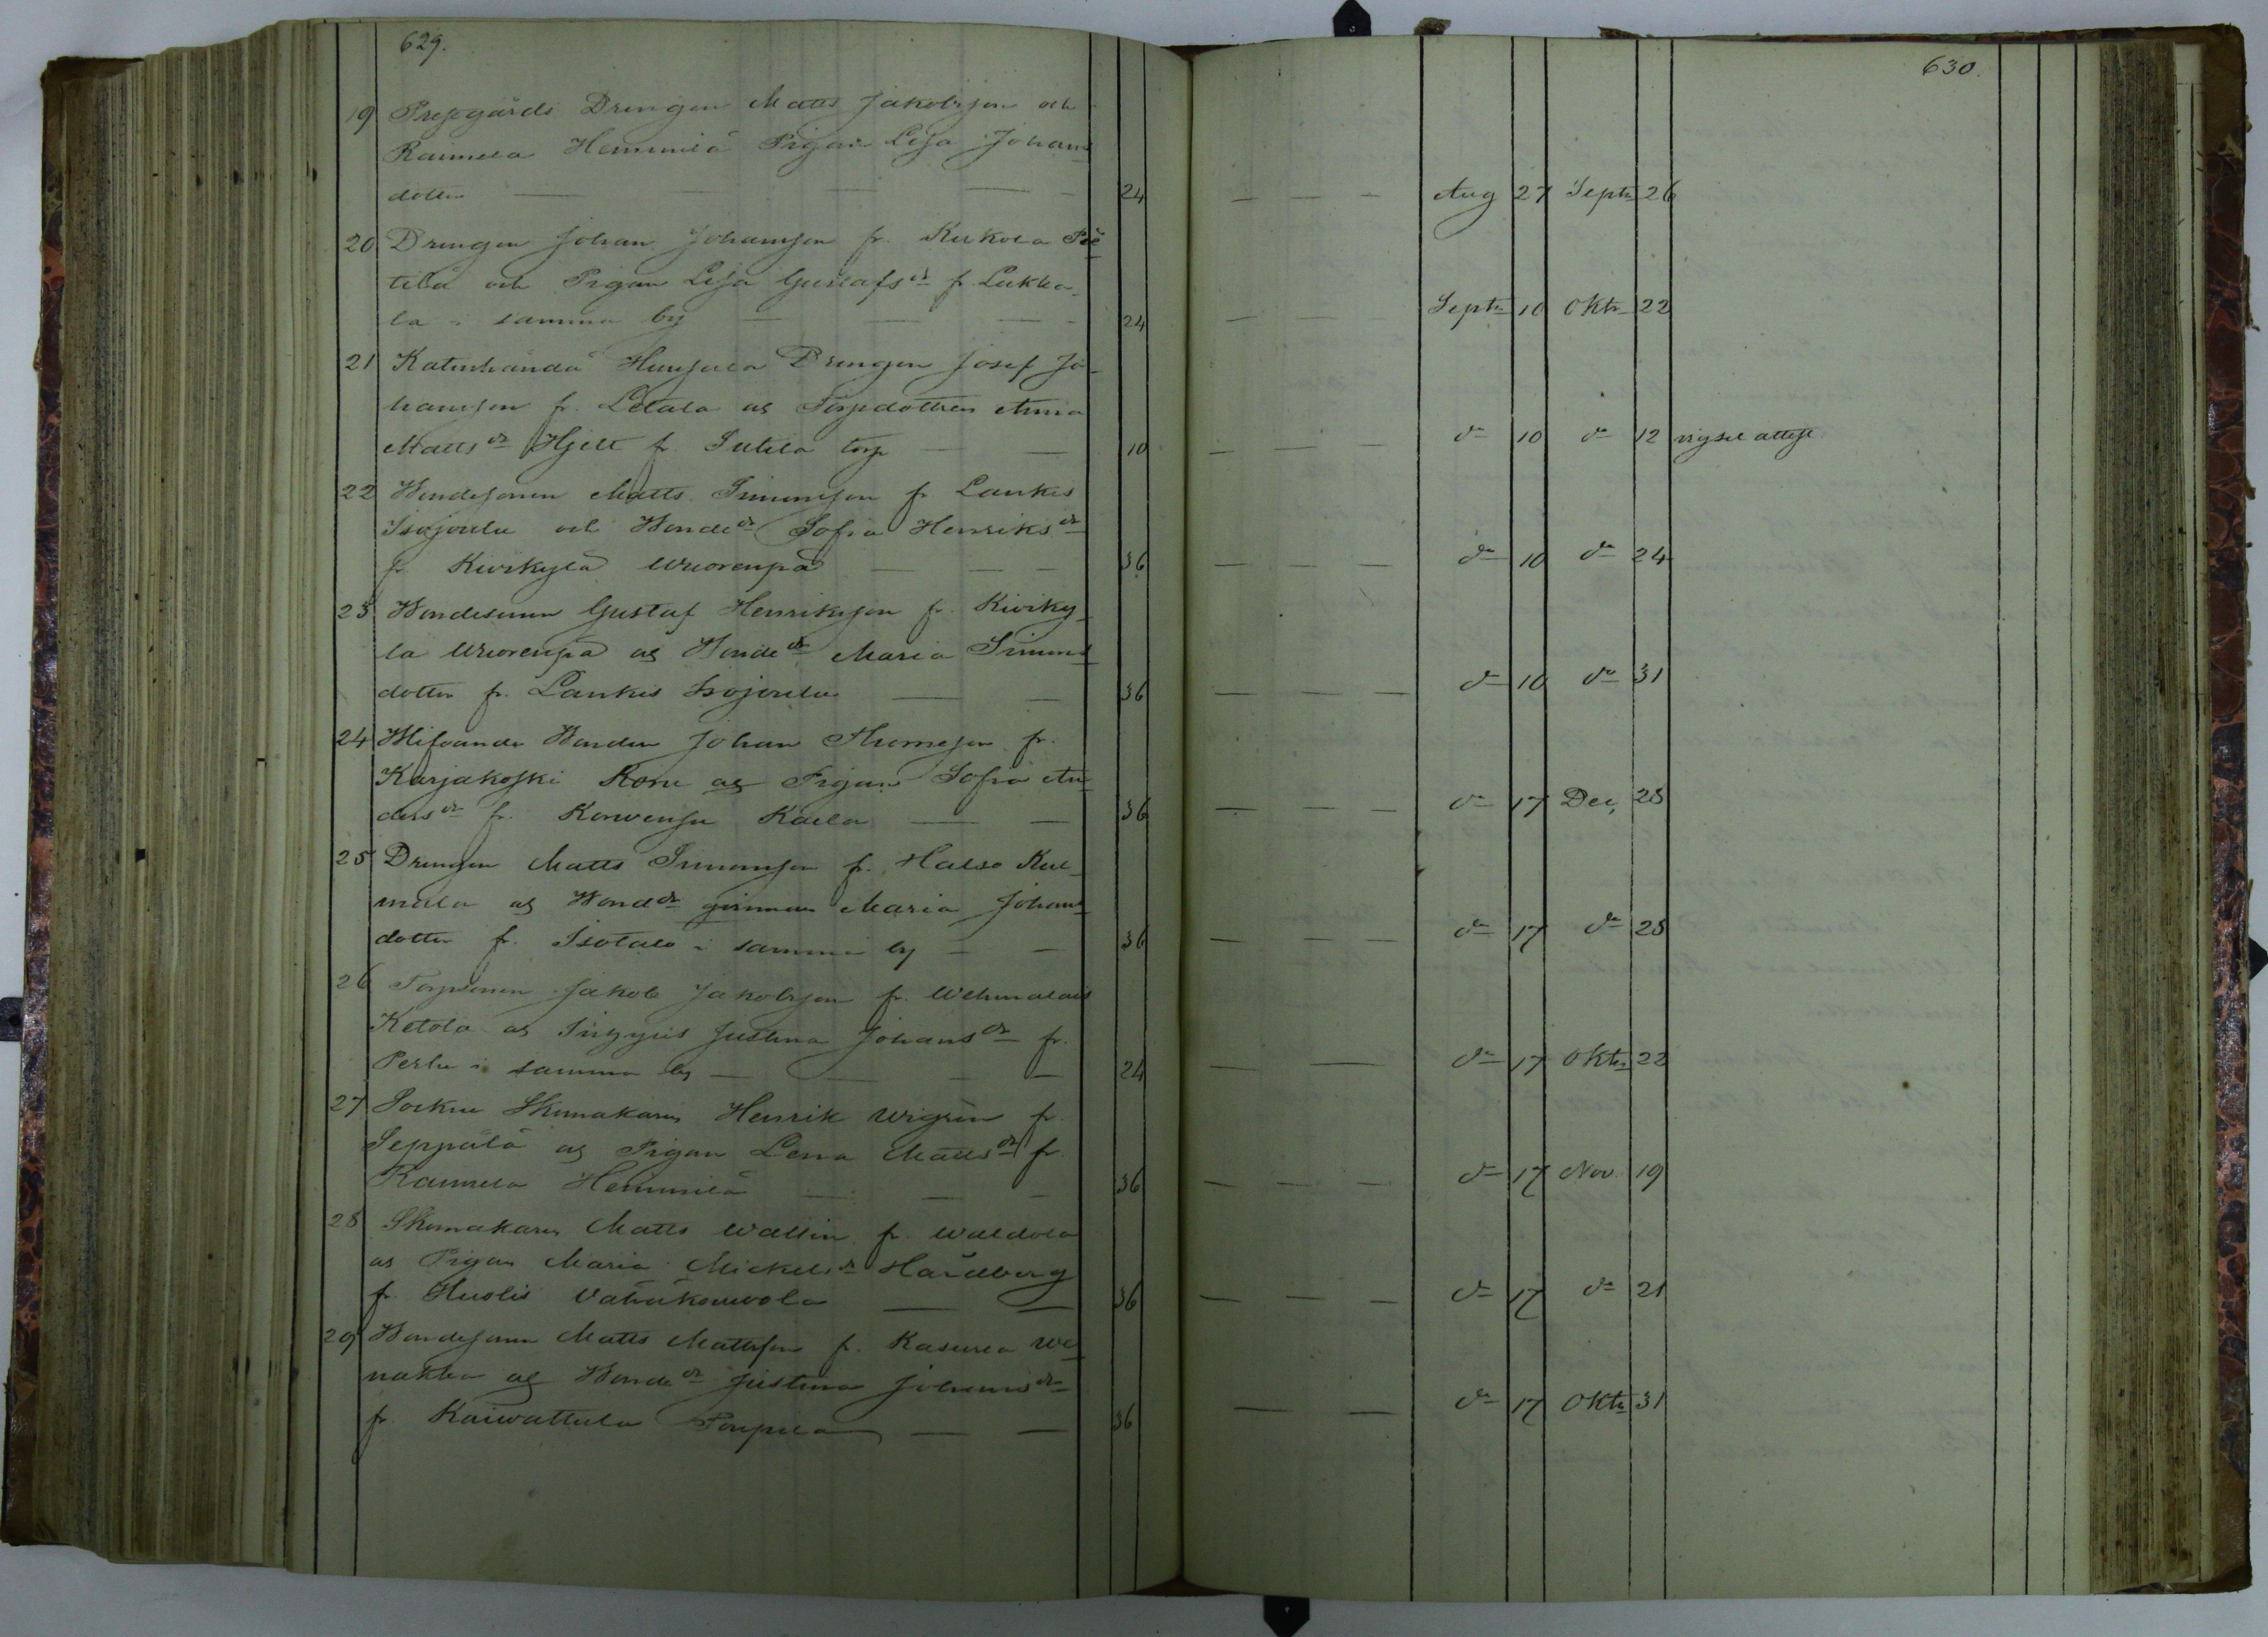 629.
630.
19 Prestgårds Drengen Matts Jakobsson och
Raumela Hemmilä Pigan Lisa Johans
dotter — — — — 24 — — — Aug 27 Septr 26
20 Drengen Johan Johansson fr. Kukola
tilä och Pigan Lisa Gustafsdr fr Lukka-
la i samma by — — — 24 — — Septr 10 Oktr 22
21 Katinhändä Drengen Josef Jo-
hansson fr. Letala og Torpdottren Anna
Mattsdr Hjelt fr. Sutila torp — — 10 — — — do 10 do 12 vigsel attest
22 Bondesonen Matts Simonsson fr Lankis
Isojoulu och Bondedr Sofia Henriksdr
fr Kivikylä Wuorenpä — — — 36 — — — do 10 do 24
23 Bondesonen Gustaf Henriksson fr. Kiviky-
lä Wuorenpä og Bondedr Maria Simons
dotter fr. Lankis Isojoulu — — 36 — — — do 10 do 31
24 Bonden Johan Thomesson fr.
Karjakoski Koru og Pigan Sofia An-
dersdr fr. Korwensu Kaela — — 36 — — — do 17 Dec, 28
25 Drengen Matts Simonsson fr. Halso Kul-
mala og Maria Johans
dotter fr. Isotalo i samma by — — 36 — — — do 17 do 28
26 Torpsonen Jakob Jakobsson fr. Wehmalais
Ketola og Justina Johansdr fr.
Perlu i samma by — — — — 24 — — do 17 Oktr 22
27 Sockne Skomakaren Henrik Wigren fr.
Seppälä og Pigan Lena Mattsdr fr
Raumela Hemmilä — — — 36 — — — do 17 Nov. 19
28 Skomakaren Matts Wallin fr. Waldola
og Pigan Maria Mickelsdr Hardberg
fr. Huolis Vähäkouvola — — 36 — — — do 17 do 21
29 Bondesonen Matts Mattsson fr. Kasurla We-
nakka og Bondedr Justina Johansdr
fr. Kaiwattula Poupila — — 36 — — do 17 Oktr 31